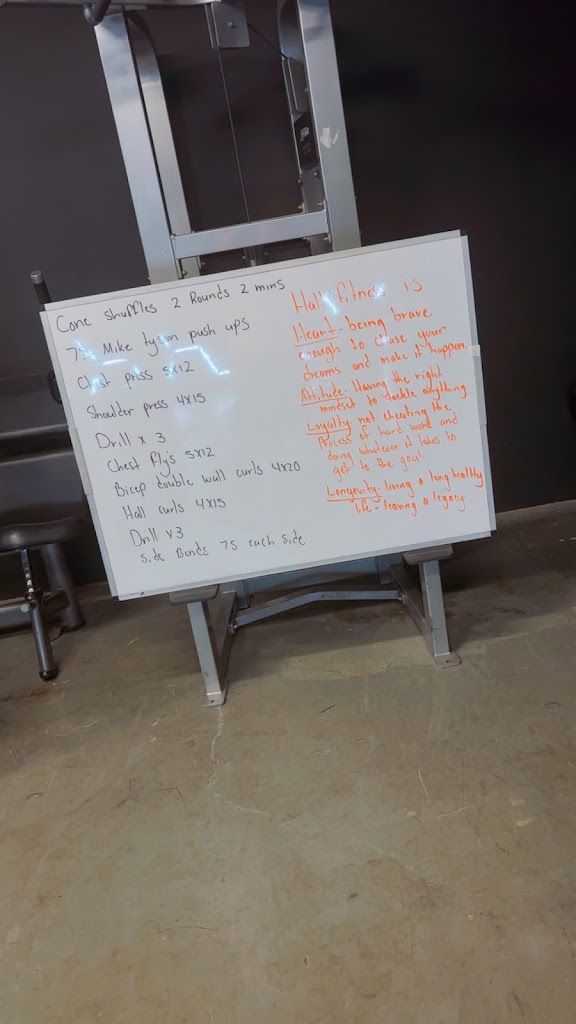 Cone shuffles 2 Rounds 2 mins
75 Mike tyson push ups
Chest press 5x12
Shoulder press 4x15
Drill x 3
Chest fly's 5x12
Bicep double wall curls 4x20
Hall curls 4x15
Drill x3
Side Bends 75 each side
Hall fitness is
Heart- being brave
enough to chase your
dreams and make it happen.
Attitude- Having the right
mindset to tackle anything
Loyalty- not cheating the
Process of hard work and
doing whatever it takes to
get to the goal
Longevity- living a long healthy
life - leaving a legacy